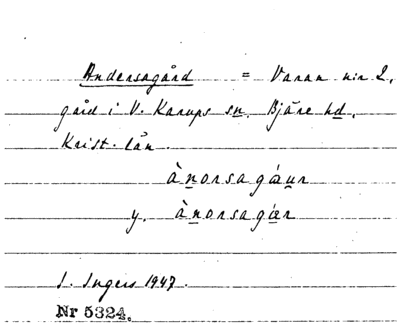 Andersagård = Varan n:r 2,
gård i V. Karups sn. Bjäre hd.
Krist. län.
ànorsagáur
y. ànorsagǿr
I. Ingers 1947.
Nr 5324.